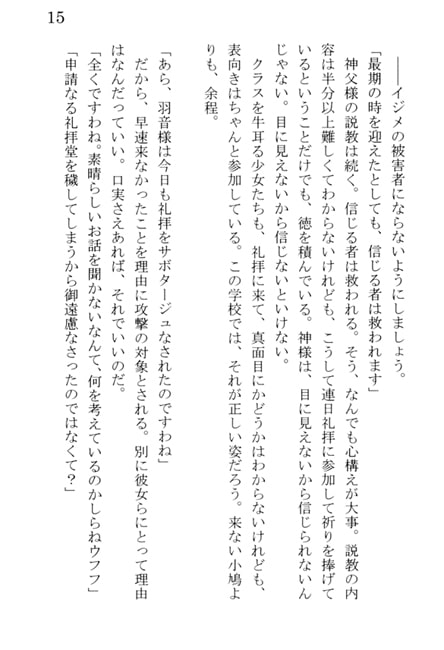 15
――イジメの被害者にならないようにしましょう。
「最期の時を迎えたとしても、信じる者は救われます」
神父様の説教は続く。信じる者は救われる。そう、なんでも心構えが大事。説教の内
容は半分以上難しくてわからないけれども、こうして連日礼拝に参加して祈りを捧げて
いるということだけでも、徳を積んでいる。神様は、目に見えないから信じられないん
じゃない。目に見えないから信じないといけない。
クラスを牛耳る少女たちも、礼拝に来て、真面目にかどうかはわからないけれども、
表向きはちゃんと参加している。この学校では、それが正しい姿だろう。来ない小鳩よ
りも、余程。
「あら、羽音様は今日も礼拝をサボタージュなされたのですわね」
だから、早速来なかったことを理由に攻撃の対象とされる。別に彼女らにとって理由
はなんだっていい。口実さえあれば、それでいいのだ。
「全くですわね。素晴らしいお話を聞かないなんて、何を考えているのかしらねウフフ」
「申請なる礼拝堂を穢してしまうから御遠慮なさったのではなくて？」